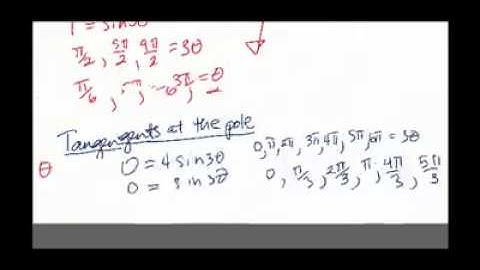 1 = sin3θ
π/2, 5π/2, 9π/2 = 3θ
π/6, = θ
Tangengents at the pole
θ
0 = 4 sin3θ
0 = sin 3θ
0, π, 2π, 3π, 4π, 5π, 6π = 3θ
0, π/3, 2π/3, π, 4π/3, 5π/3